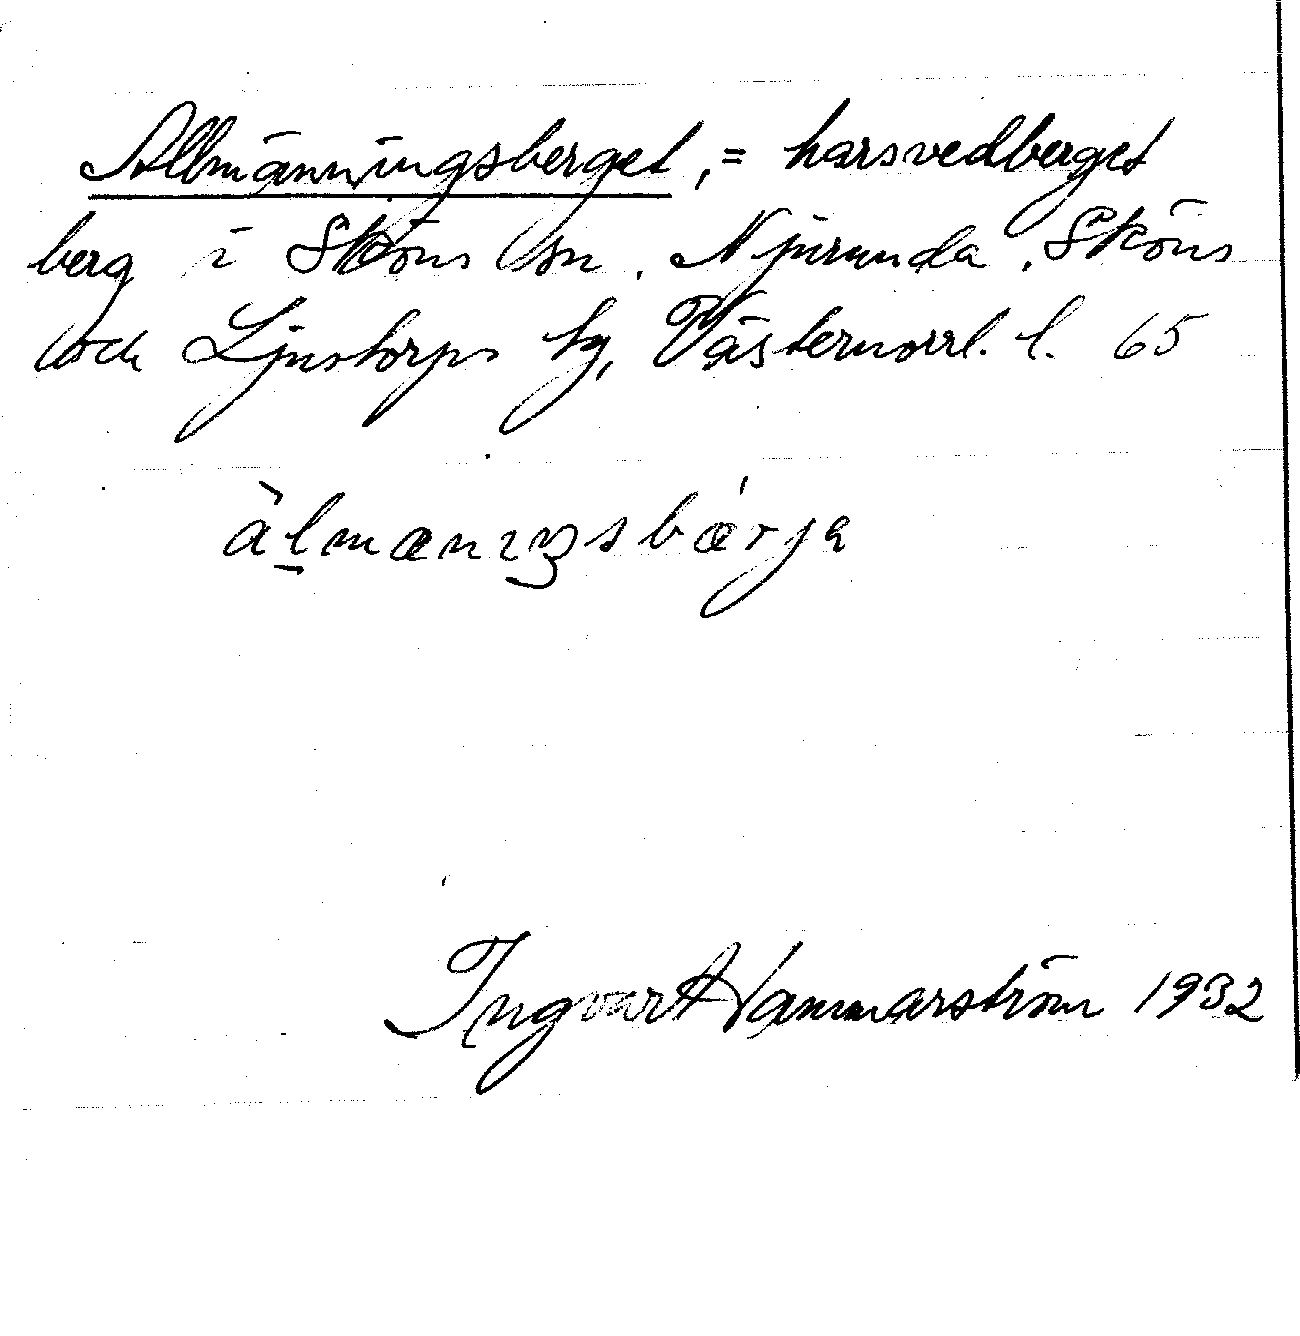 Allmänningsberget, = harsvedberget
berg i Sköns sn. Njurunda, Sköns
och Ljustorps tg, Västernorrl. l. 65
àlmænıŋsbǽrja
Ingvar Hammarström 1932